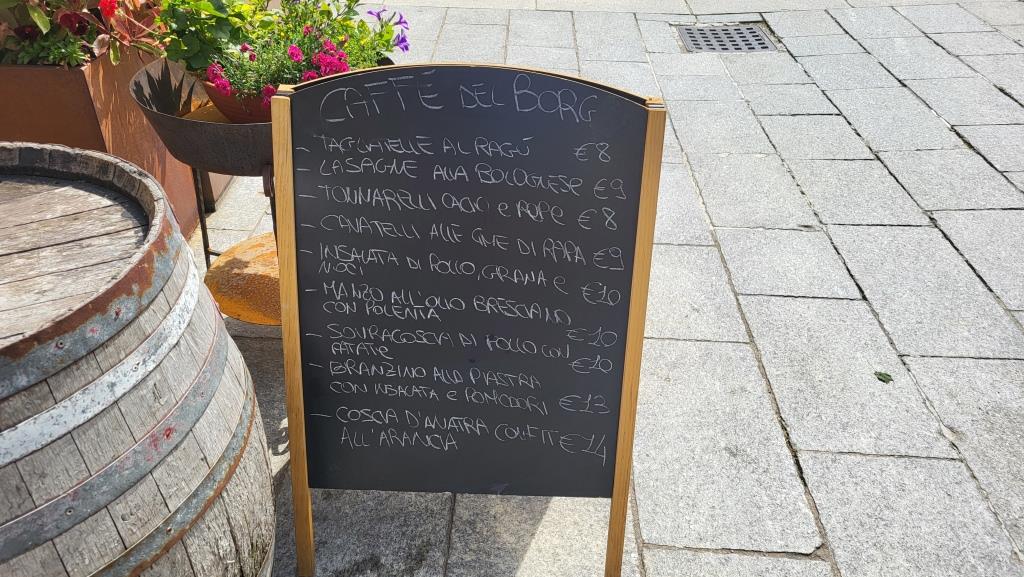 CAFFÈ DEL BORG
- TAGLIATELLE AL RAGÚ €8
- LASAGNE ALLA BOLOGNESE €9
- TONNARELLI CACIO e PEPE €8
- CAVATELLI ALLE CIME DI RAPA €9
- INSALATA DI POLLO, GRANA e NOCI €10
- MANZO ALL'OLIO BRESCIANO
CON POLENTA €10
- SOVRACOSCIA DI POLLO CON
PATATE €10
- BRANZINO ALLA PIASTRA
CON INSALATA e POMODORI €13
- COSCIA D'ANATRA CONFIT €14
ALL'ARANCIA